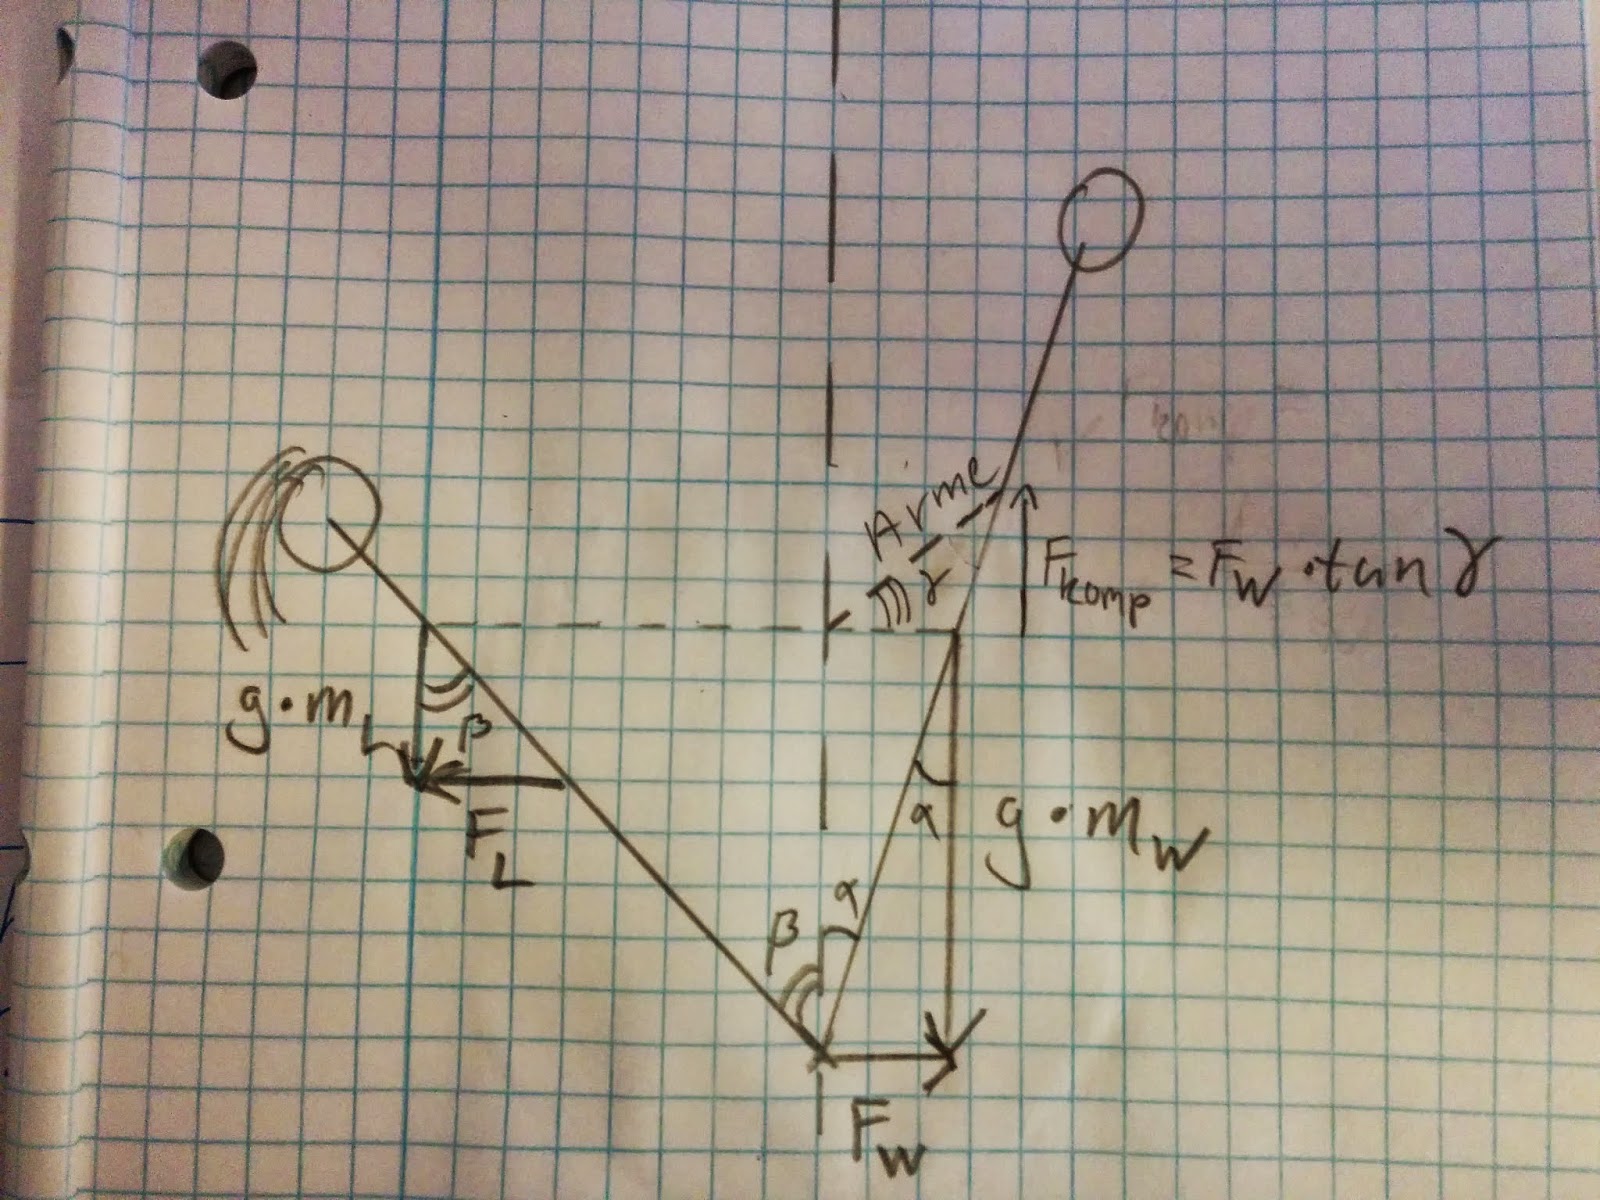 Arme
γ
F_komp = F_W · tan γ
g · m_L
β
F_L
α
g · m_W
β
α
F_W